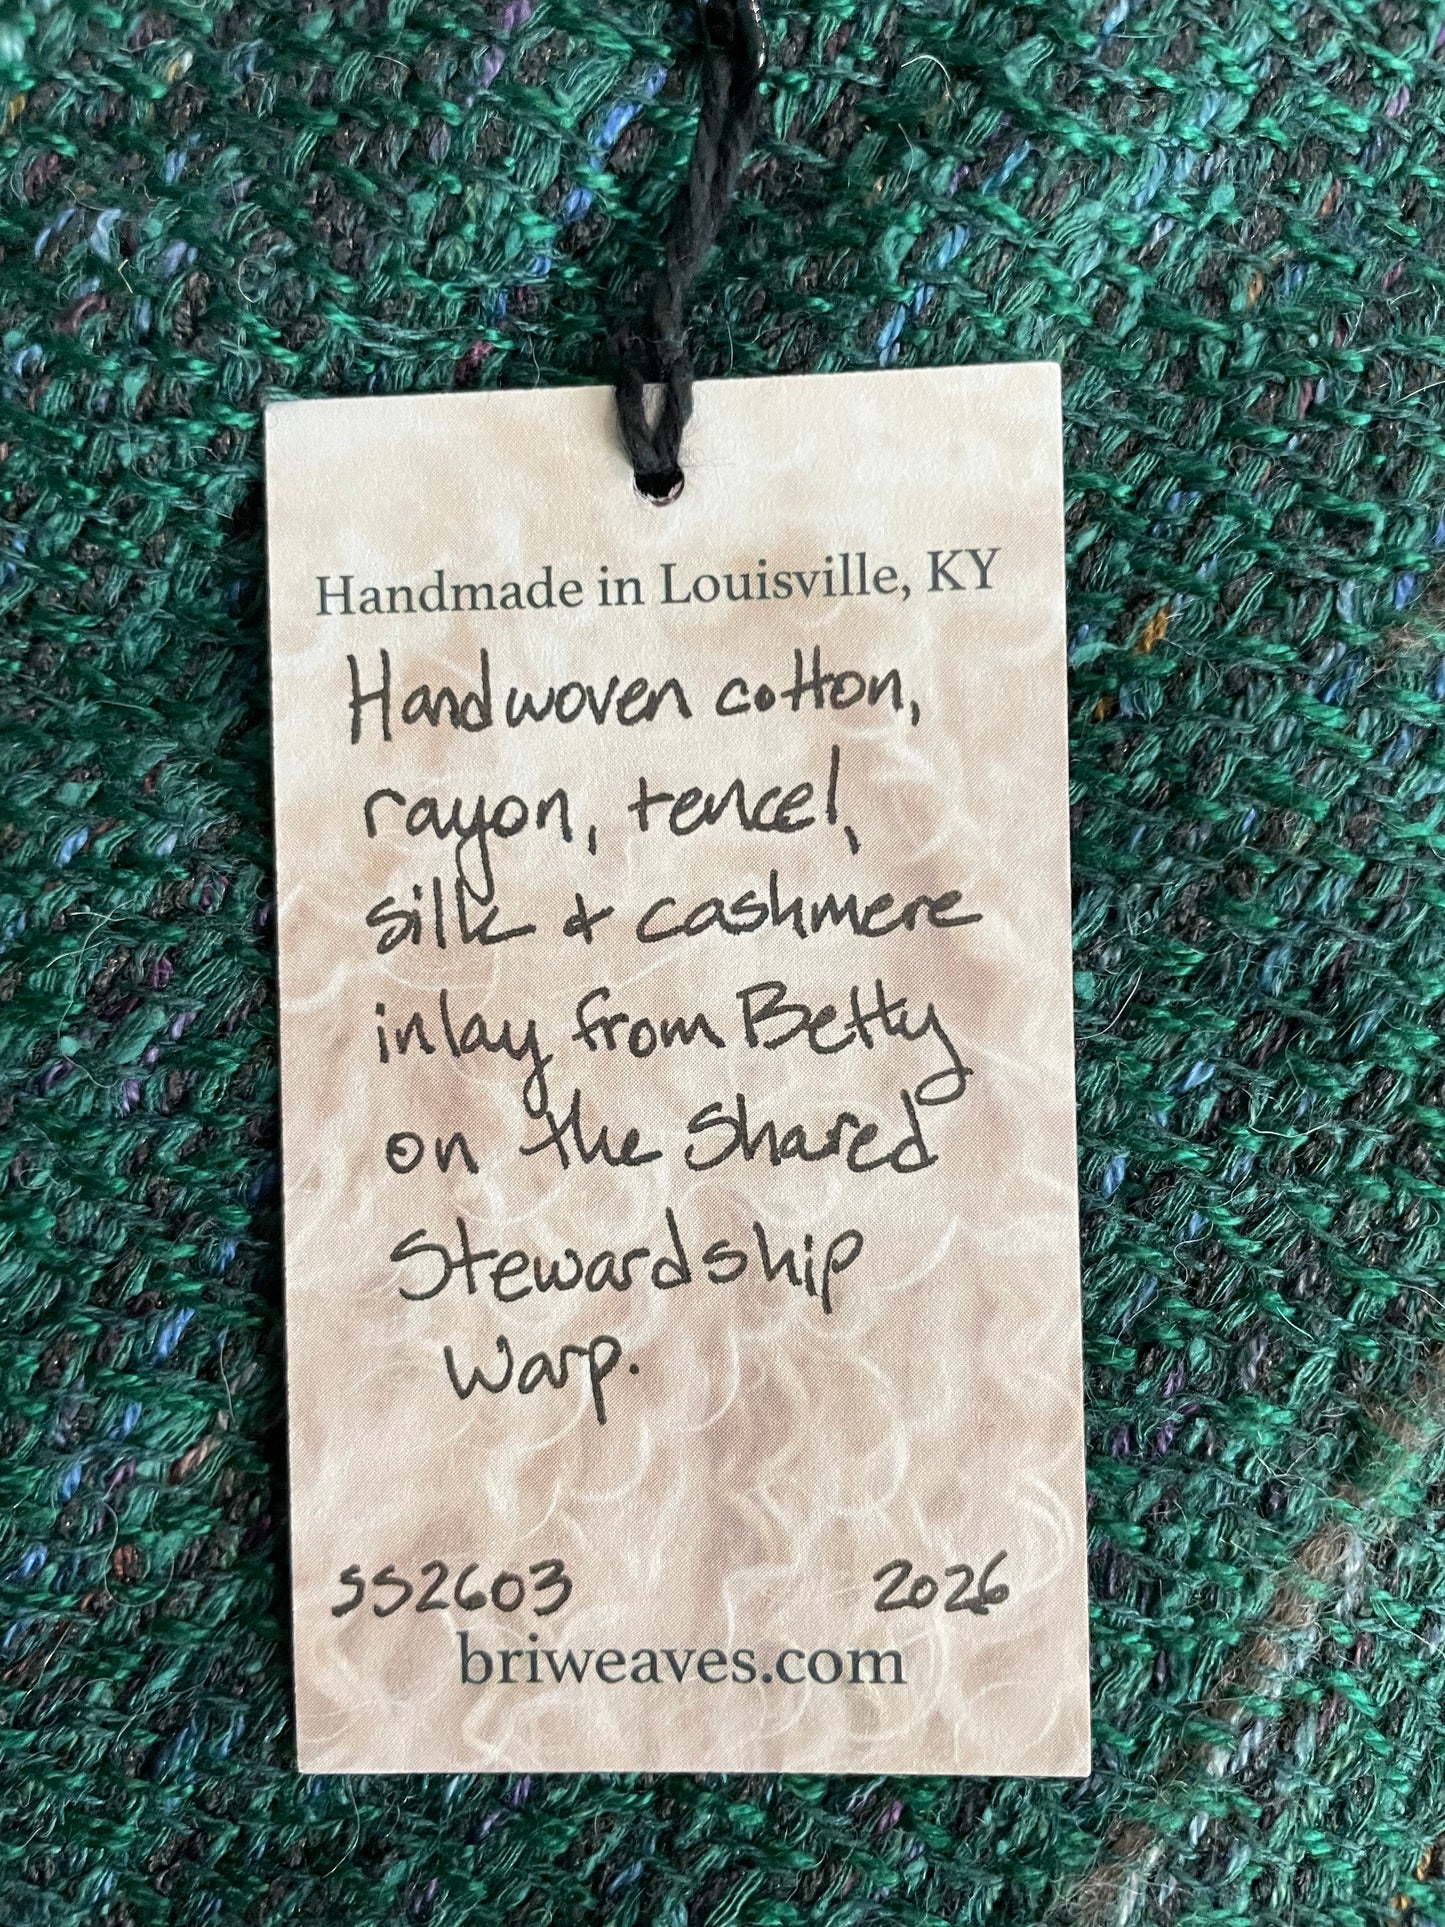 Handmade in Louisville, KY
Handwoven cotton,
rayon, tencel,
silk & cashmere
inlay from Betty
on the Shared
Stewardship
Warp.
SS2603 2026
briweaves.com